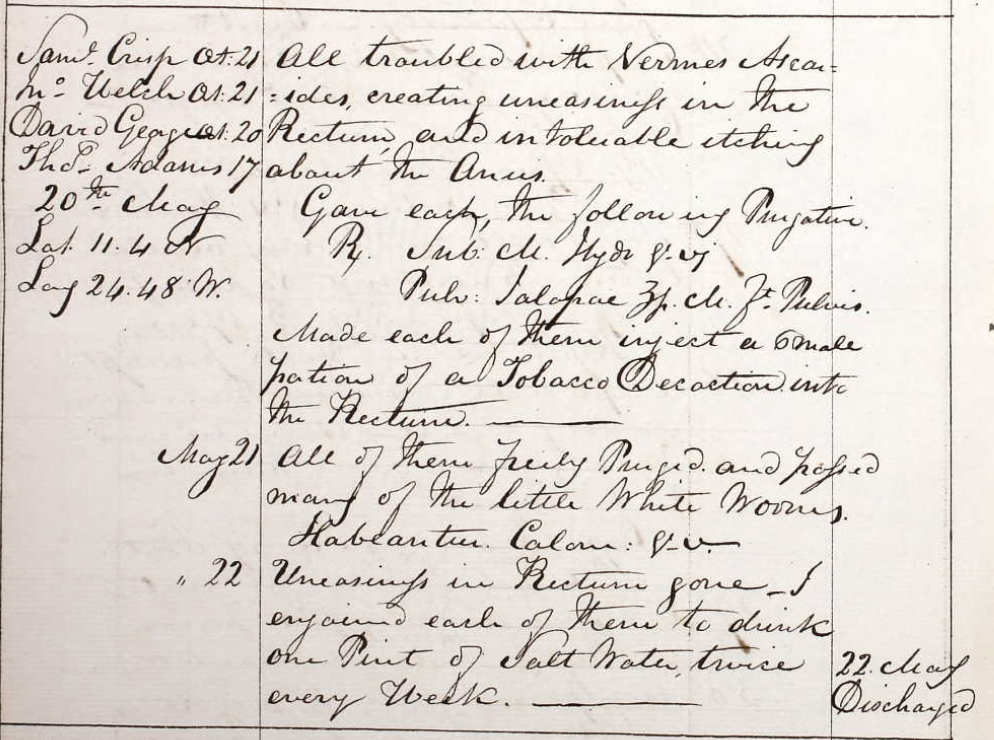 Saml. Crisp Æt: 21
Jno. Welch Æt: 21
David Geage Æt: 20
Thos. Adams 17
20th May
Lat. 11.4 N
Long 24.48 W.
All troubled with Vermes Ascar=
=ides, creating uneasiness in the
Rectum, and intolerable itching
about the Anus.
Gave each, the following Purgative.
Rx. Sub: M. Hydr gr. vj
Pulv: Jalapae ʒfs. M. ft. Pulvis.
Made each of them inject a small
potion of a Tobacco Decoction into
the Rectum.
May 21
All of them freely Purged. and passed
many of the little White Worms.
Habeantur. Calom: gr. v.
" 22
Uneasiness in Rectum gone _ I
enjoined each of them to drink
one Pint of Salt Water, twice
every Week.
22. May
Discharged